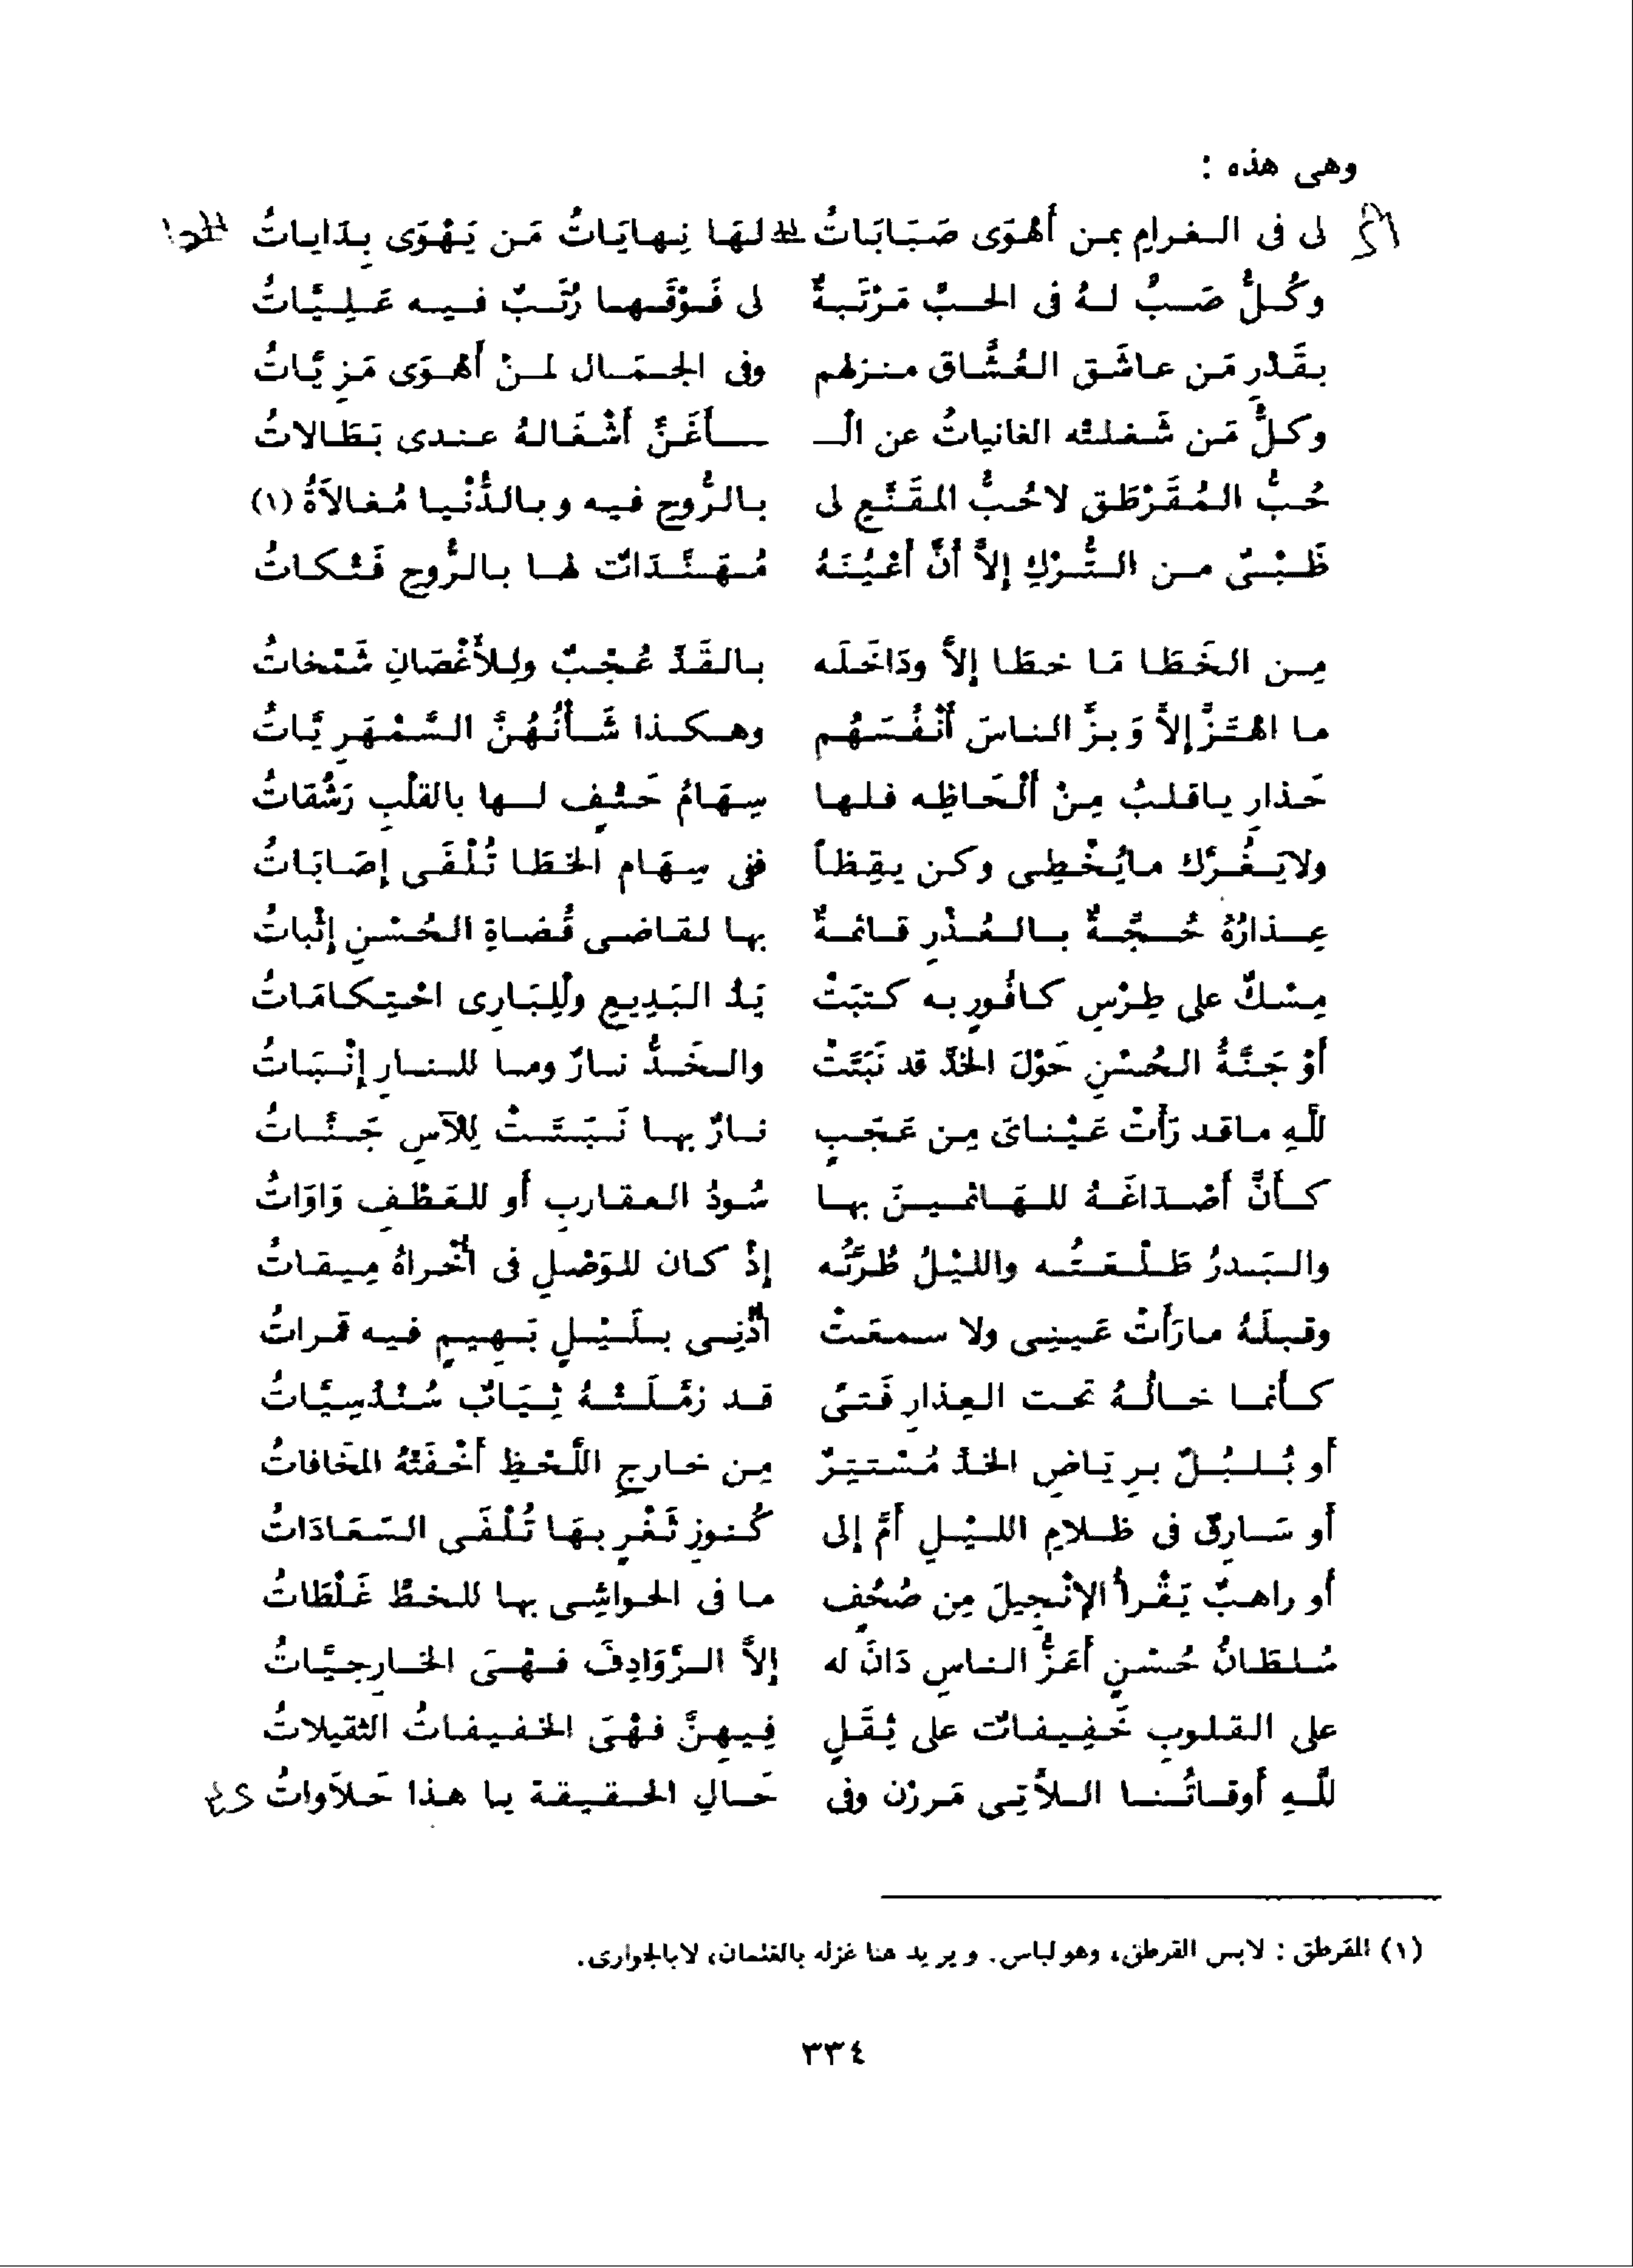 وهى هذه :
لى فى الـغرامِ بمن أَهْوَى صَبَابَاتُ لهَا نِهايَاتُ مَن يَهْوَى بِدَاياتُ
وكُلُّ صَبٍّ لهُ فى الحبِّ مَرْتَبةٌ لى فَوْقَها رُتَبٌ فيه عَلِيَّاتُ
بقَدْرِ مَن عاشَق العُشَّاق منزلهم وفى الجمَال لمنْ أَهْوَى مَزِيَّاتُ
وكلُّ مَن شَغلته الغانياتُ عن الْـ ـأَغَنِّ أَشْغَالهُ عندى بَطَالاتُ
حُبُّ المُقَرْطَقِ لاحُبُّ المقَنَّعِ لى بالرُّوحِ فيه وبالدُّنْيا مُغالاَةُ (١)
ظَبْىٌ من التُّرْكِ إلاَّ أنَّ أعْيُنَهُ مُهَنَّدَاتٌ لها بالرُّوحِ فَتْكاتُ
مِن الخَطَا مَا خطَا إلاَّ ودَاخَلَه بالقَدِّ عُجْبٌ ولِلأَغْصَانِ شَمْخاتُ
ما اهْتَزَّ إلاَّ وَبزَّ الناسَ أَنْفُسَهُم وهكذا شَأْنُهُنَّ السَّمْهَرِيَّاتُ
حَذارِ ياقلبُ مِنْ أَلْحَاظِه فلها سِهَامُ حَتْفٍ لها بالقلْبِ رَشْقاتُ
ولايَغُرَّك مايُخْطِى وكن يقِظاً ففى سِهَام الخطَا تُلْفَى إصَابَاتُ
عِذارُهُ حُجَّةٌ بالعُذْرِ قائمةٌ بها لقاضى قُضاةِ الحُسْنِ إثْباتُ
مِسْكٌ على طِرْسِ كافُورٍ به كتبَتْ يَدُ البَدِيعِ ولْلِبَارِى احْتِكامَاتُ
أوْ جَنَّةُ الحُسْنِ حَوْلَ الخدِّ قد نَبَتَتْ والخَدُّ نارٌ وما للنارِ إنْبَاتُ
للَّهِ ماقد رَأَتْ عَيْناىَ مِن عَجَبٍ نارٌ بها نَبَتَتْ لِلآسِ جَنَّاتُ
كأنَّ أَصْدَاغَهُ للهَائمينَ بها سُودُ العقاربِ أو للعَطْفِ وَاوَاتُ
والبَدرُ طَلْعَتُه والليْلُ طُرَّتُه إذْ كان للوَصْلِ فى اُخْراهُ مِيقاتُ
وقبلَهُ مارَأَتْ عَينِى ولا سمعَتْ اُذْنِى بلَيْلٍ بَهِيمٍ فيه قمراتُ
كأنما خالُهُ تحت العِذارِ فَتىً قد زمَّلَتْهُ ثِيَابٌ سُنْدُسِيَّاتُ
أو بُلبُلٌ بِرِيَاضِ الخدِّ مُسْتَتِرٌ مِن خارجِ اللَّحْظِ أَخْفَتْهُ المخَافاتُ
أو سَارِقٌ فى ظلامِ الليْلِ أَمَّ إلى كُنوزِ ثَغْرٍ بهَا تُلْفَى السّعَادَاتُ
أو راهبٌ يَقْرأُ الإنْجِيلَ مِن صُحُفٍ ما فى الحواشِى بها للخطِّ غَلْطَاتُ
سُلطَانُ حُسْنٍ أعَزُّ الناسِ دَانَ له إلاَّ الرَّوَادِفَ فهْىَ الخارِجيَّاتُ
على القلوبِ خَفِيفاتٌ على ثِقَلٍ فِيهنَّ فهْىَ الخفيفاتُ الثقيلاتُ
للَّهِ أوقاتُنا اللاَّتِى مَررْن وفى حَالِ الحقيقة يا هذا حَلاَواتُ
(١) المقرطق : لابس القرطق، وهو لباس. ويريد هنا غزله بالغلمان، لابالجوارى.
٣٣٤